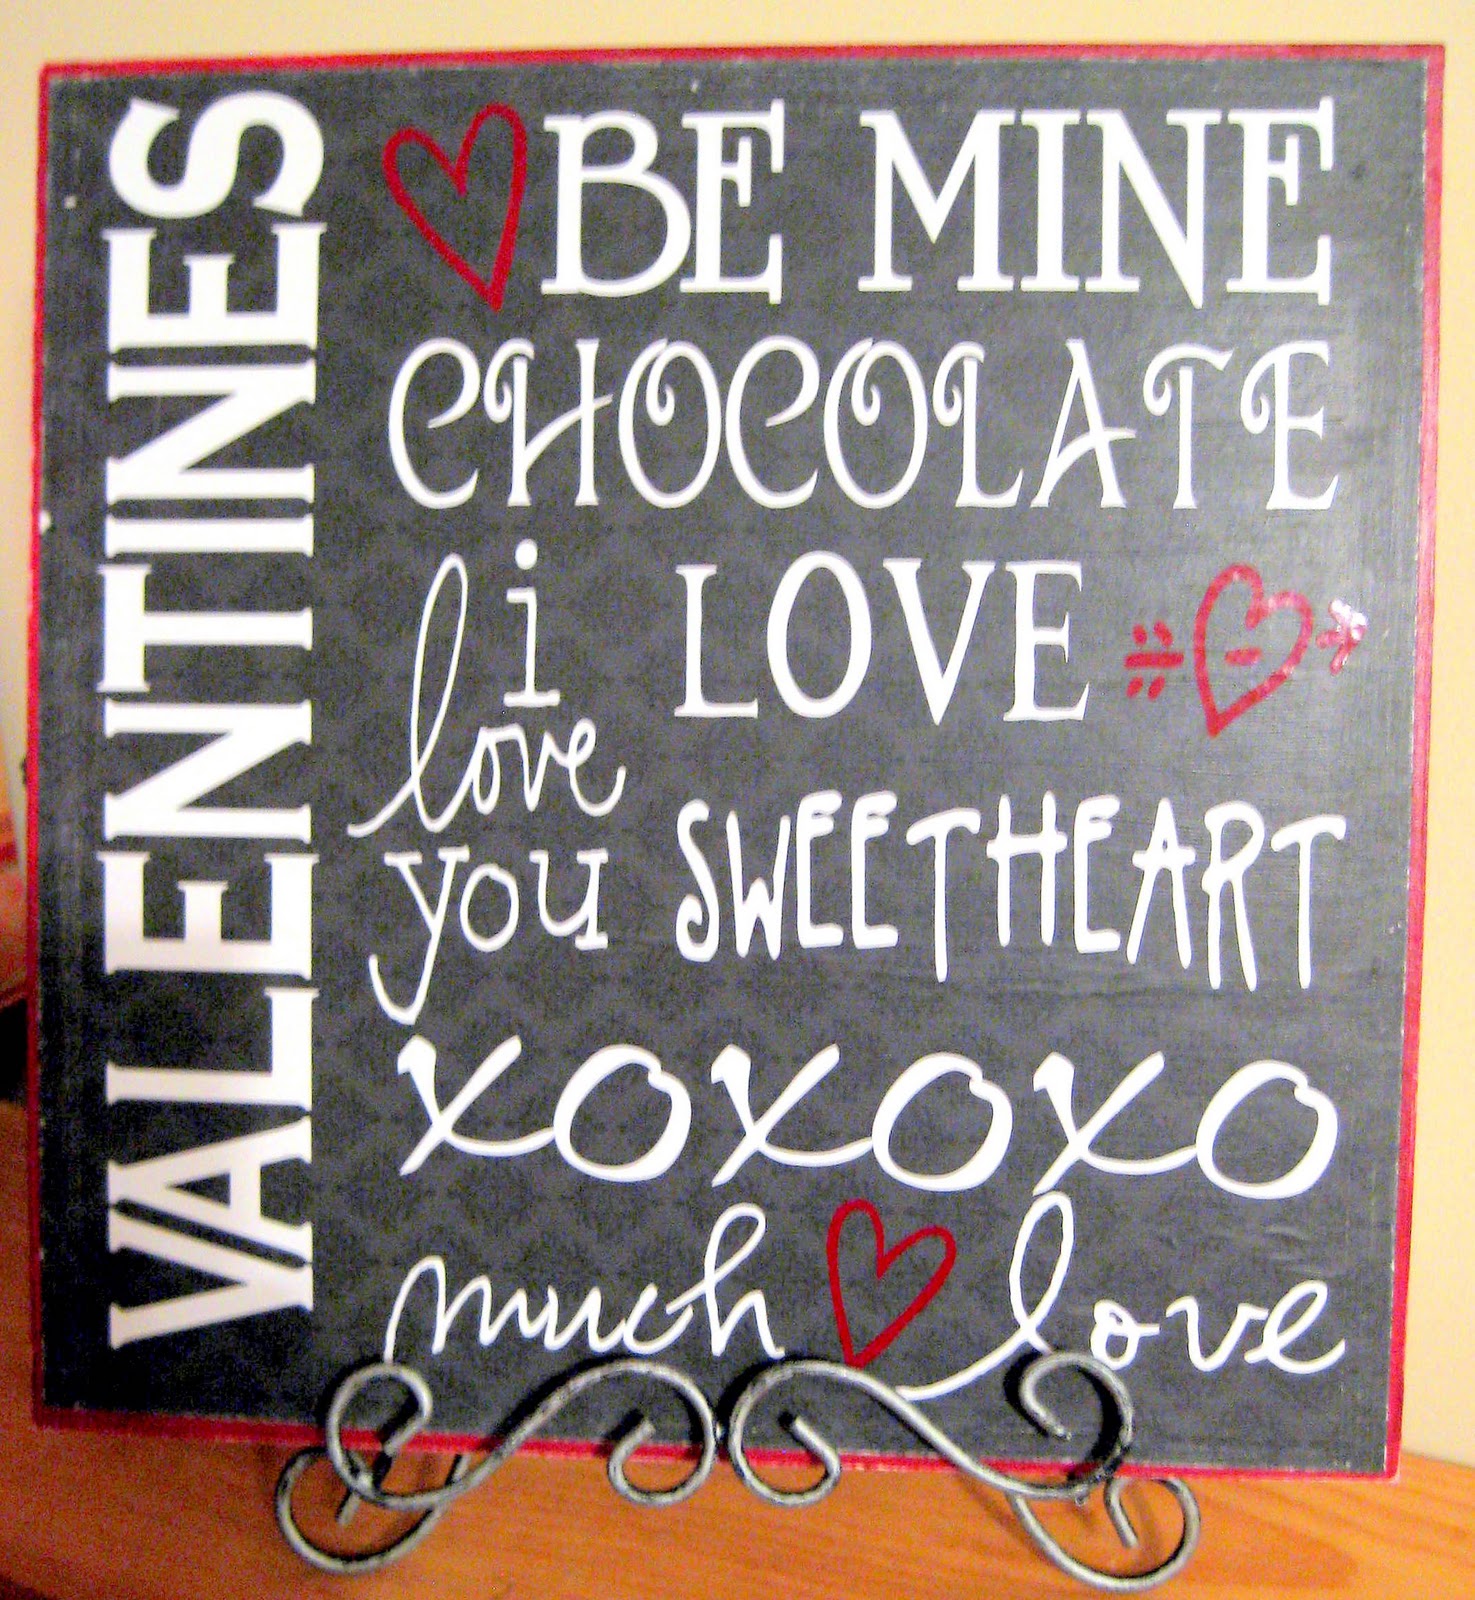 VALENTINES
BE MINE
CHOCOLATE
i
love
you
LOVE
SWEETHEART
xoxoxo
much love